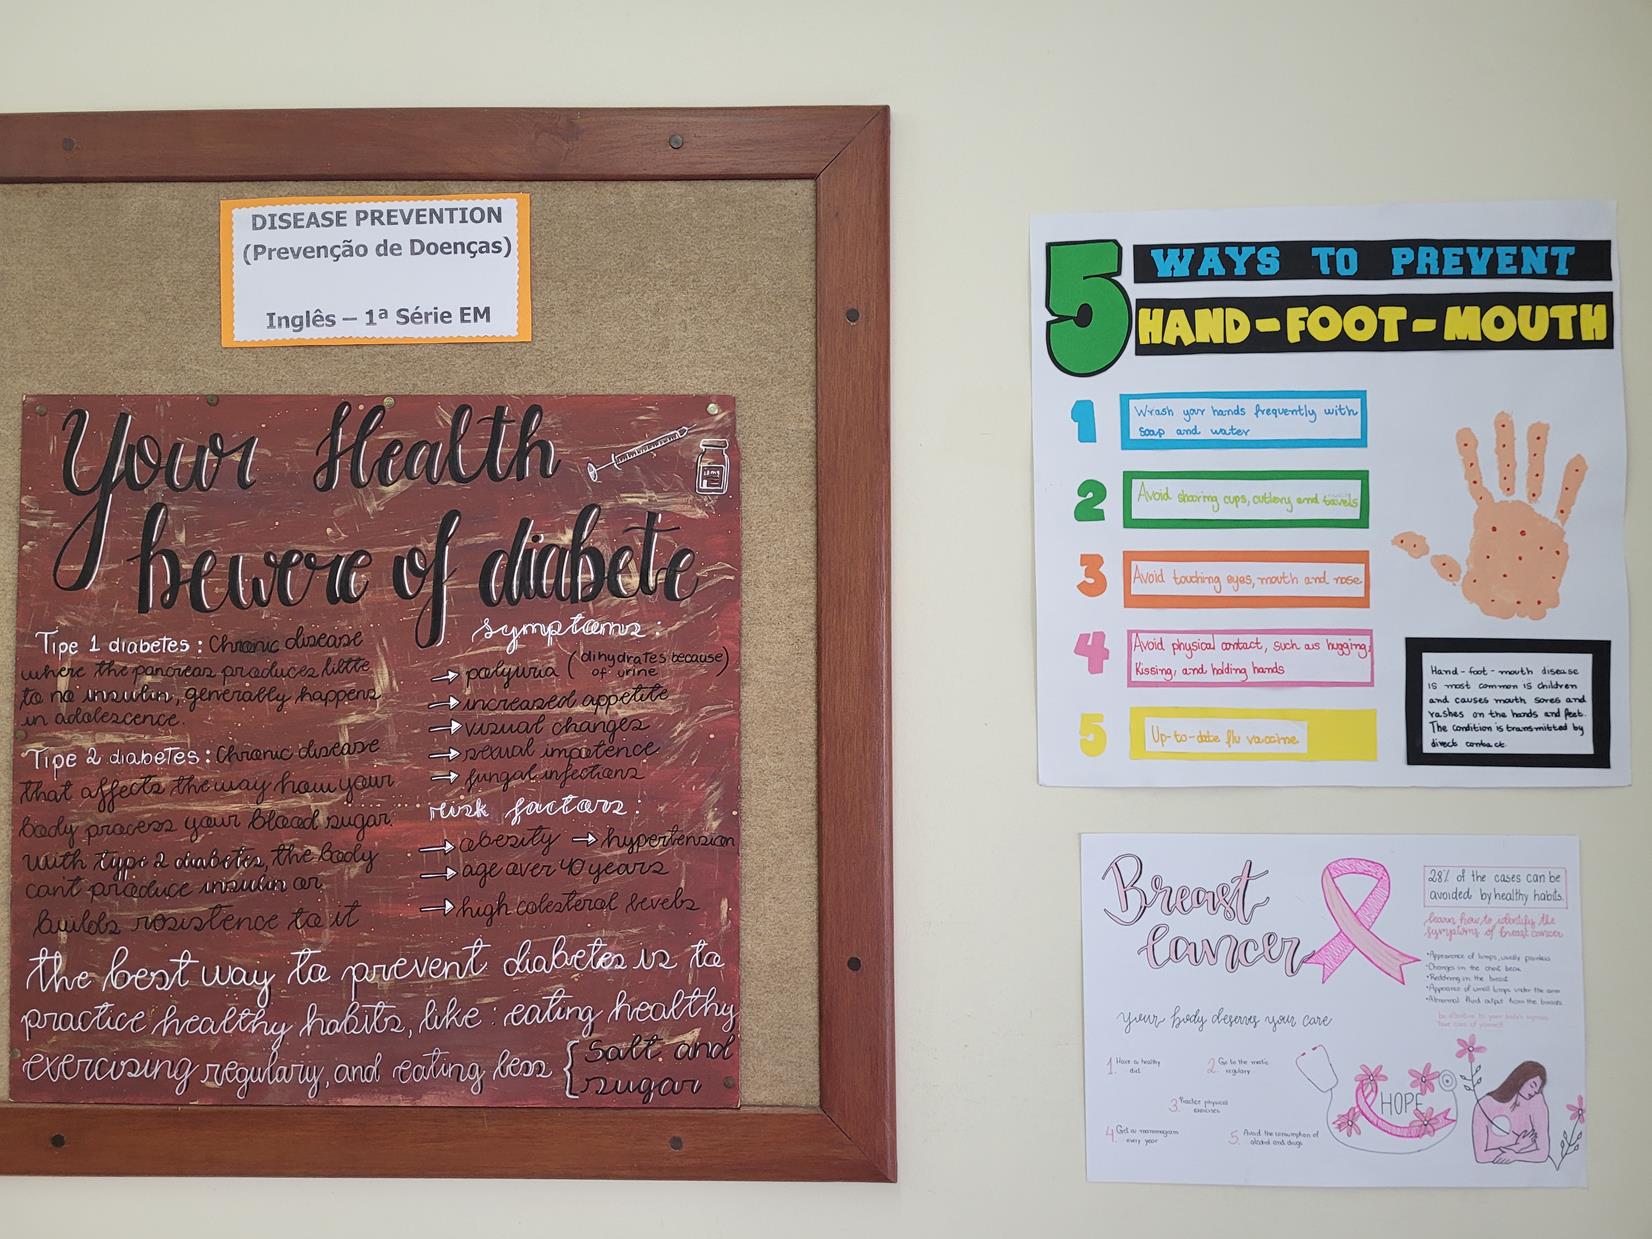 DISEASE PREVENTION
(Prevenção de Doenças)
Inglês – 1ª Série EM
Your Health
beware of diabete
Tipe 1 diabetes: Chronic disease
where the pancreas produces little
to no insulin, generally happens
in adolescence.
Tipe 2 diabetes: Chronic disease
that affects the way how your
body process your blood sugar.
With type 2 diabetes, the body
can't produce insulin or
builds resistence to it
symptoms:
polyuria (dihydrates because)
of urine
increased appetite
visual changes
sexual impotence
fungal infections
risk factors:
obesity → hypertension
age over 40 years
high colesterol levels
the best way to prevent diabetes is to
practice healthy habits, like: eating healthy
exercising regulary, and eating less { Salt and
sugar
10mg
5 WAYS TO PREVENT
HAND-FOOT-MOUTH
1 Wrash your hands frequently with
soap and water
2 Avoid sharing cups, cutlery and towels
3 Avoid touching eyes, mouth and nose
4 Avoid physical contact, such as hugging,
Kissing, and holding hands
5 Up-to-date flu vaccine
Hand-foot-mouth disease
is most common is children
and causes mouth sores and
rashes on the hands and feet.
The condition is transmitted by
direct contact.
Breast
cancer
28% of the cases can be
avoided by healthy habits.
learn how to identify the
symptoms of breast cancer
•Appearance of lumps, usually painless
•Changes in the chest beak
•Reddning in the breast
•Appearance of small lumps under the arm
•Abnormal fluid output from the breasts
be attentive to your body's signals
take care of yourself
your body deserves your care
1. Have a healthy
diet
2. Go to the medic
regulary
3. Practice physical
exercises
4. Get a mammogram
every year
5. Avoid the consumption of
alcohol and drugs
HOPE